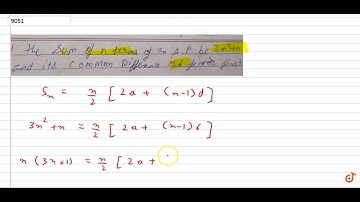 9051
1 the Sum of n terms of an A.P be 3n²+n
and its common Difference is 6 find first
Sₙ = n/2 [ 2a + (n-1)d ]
3n²+n = n/2 [ 2a + (n-1)6 ]
n (3n+1) = n/2 [ 2a +